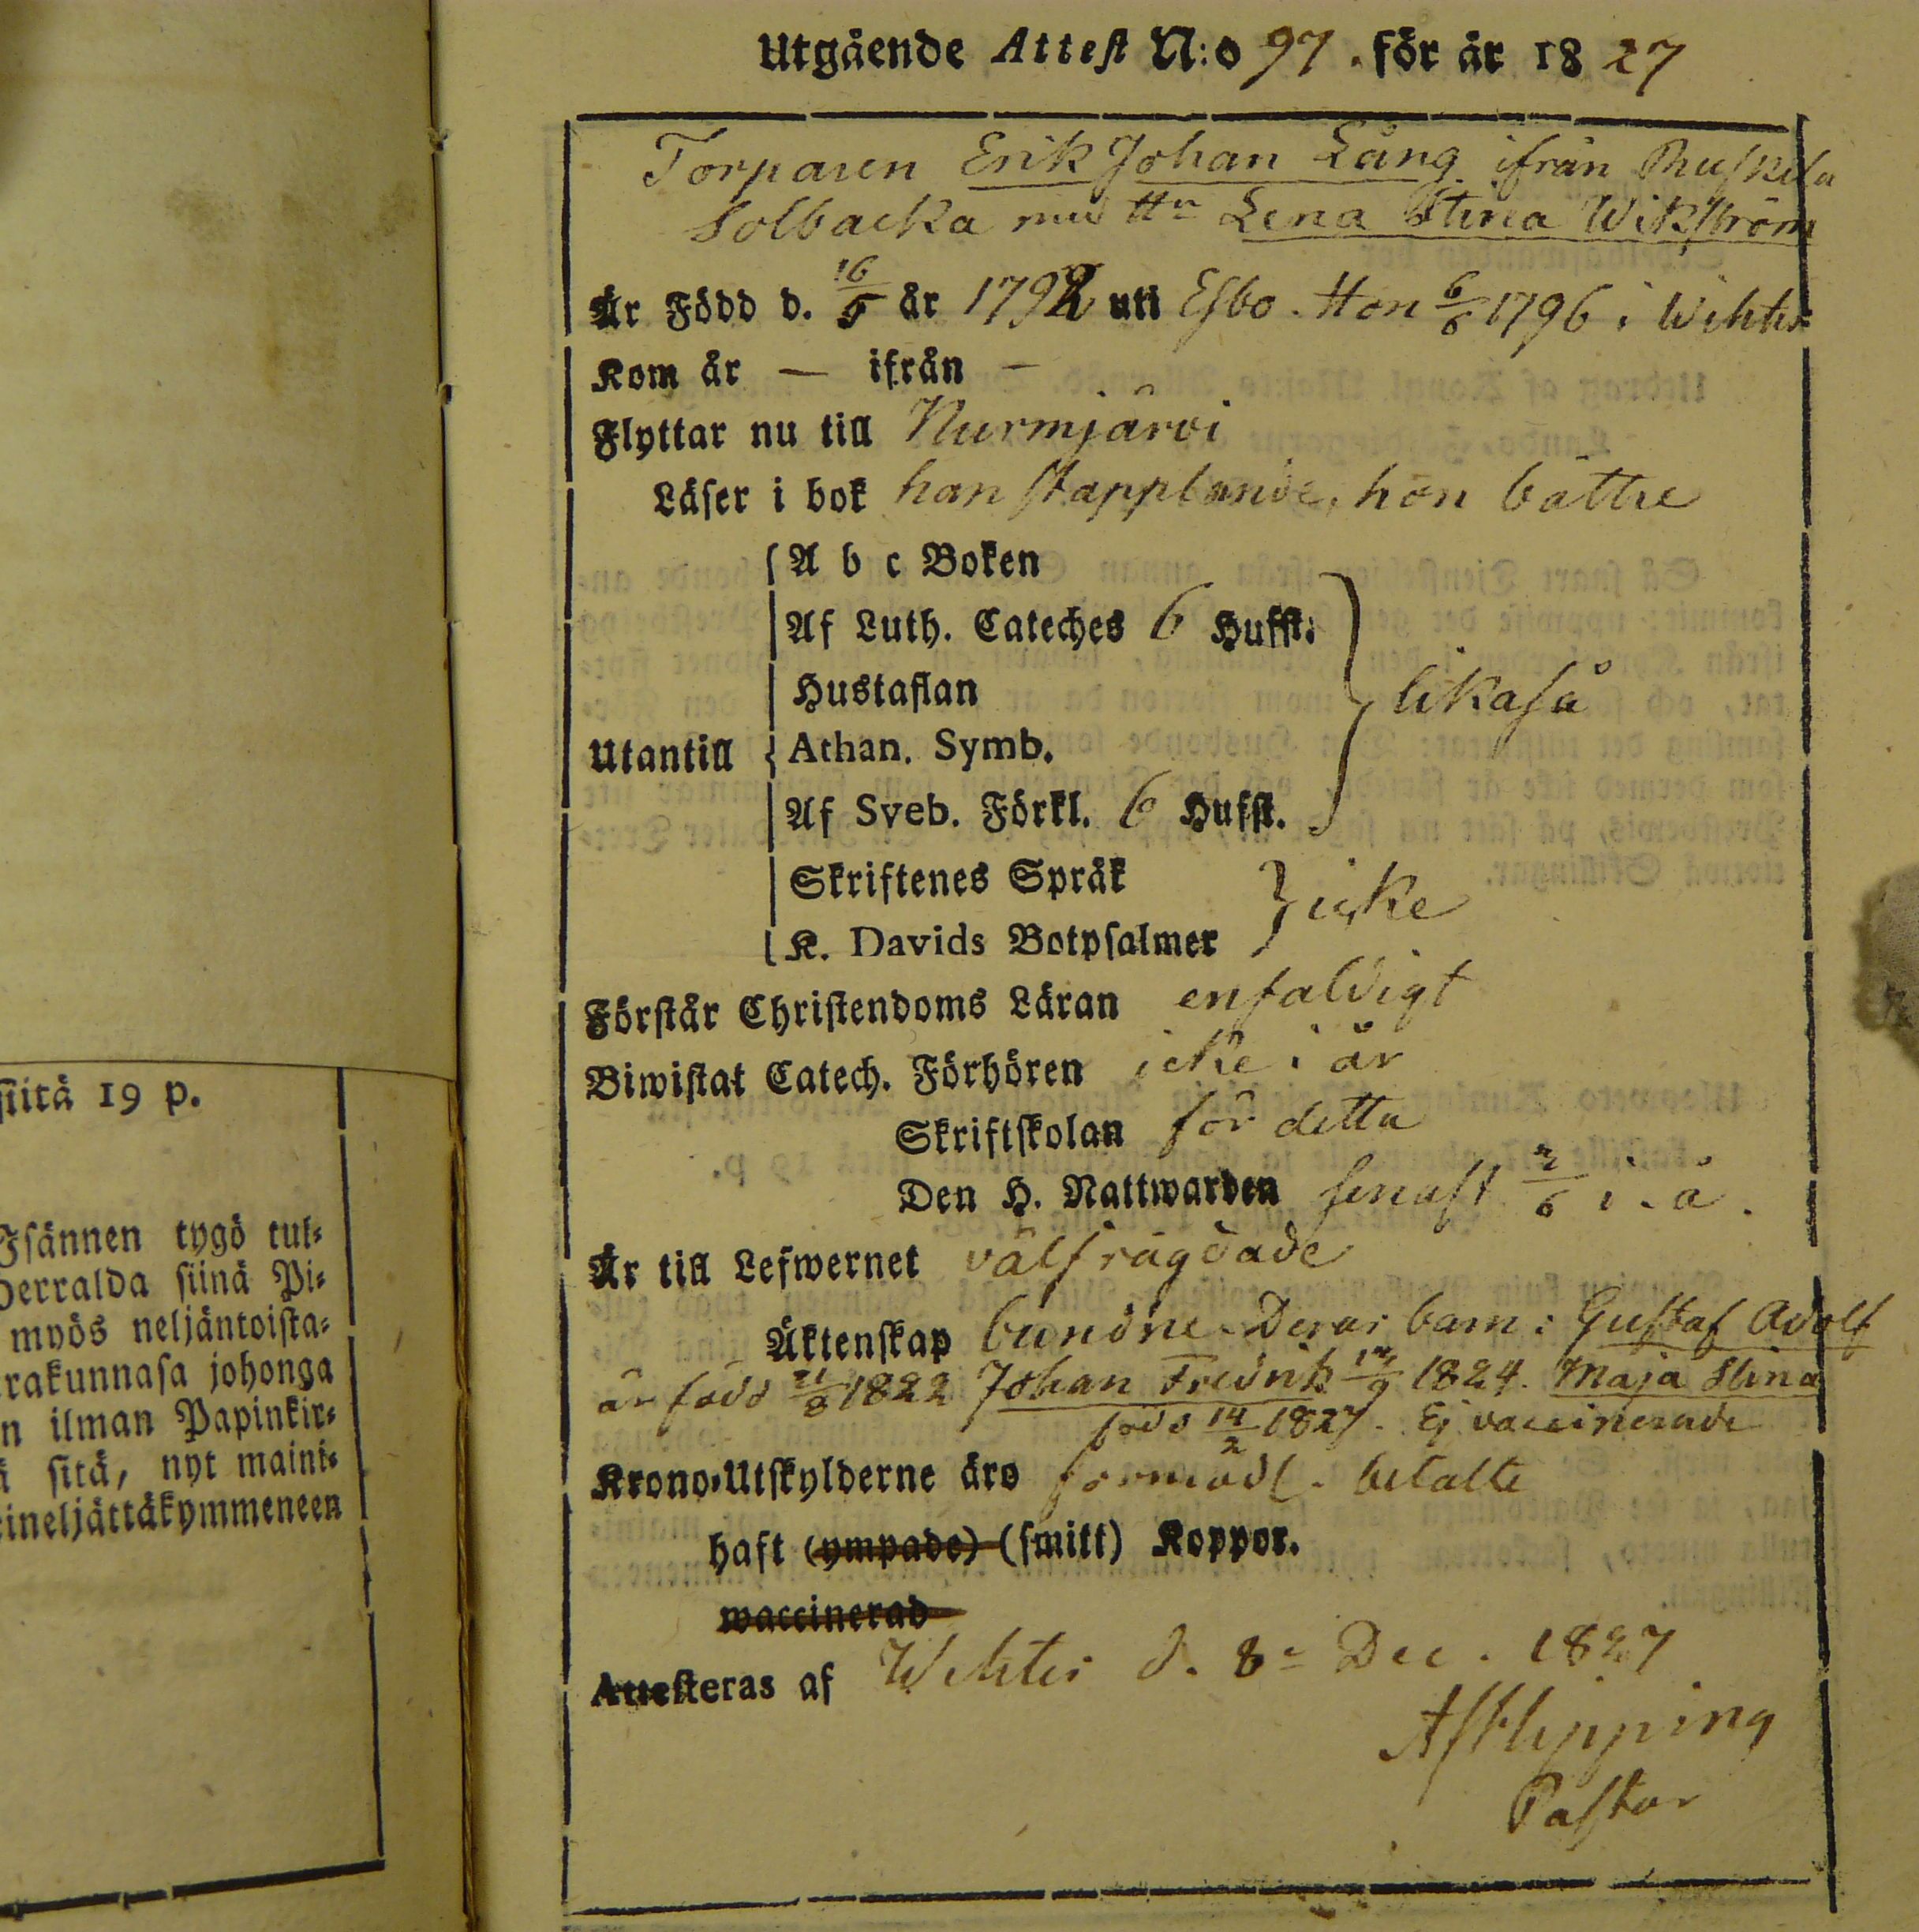 Utgående Attest N:o 97. för år 1827
Torparen Erik Johan Lång ifrån Ruskela
Solbacka med Hu Lena Stina Wikström
Är Född d. 16/5 år 1792 uti Esbo. Hon 6/6 1796 i Wihtis
Kom år — ifrån —
Flyttar nu till Nurmijärvi
Läser i bok han stapplande, hon bättre
A b c Boken
Af Luth. Cateches 6 Hufst.
Hustaflan
likaså
Utantill
Athan. Symb.
Af Sveb. Förkl. 6 Hufst.
Skriftenes Språk
icke
K. Davids Botpsalmer
Förstår Christendoms Läran enfaldigt
Biwistat Catech. Förhören icke i år
Skriftskolan för detta
Den H. Nattwarden senast /6 i. å.
Är till Lefwernet välfrägdade
Äktenskap bundne. Deras barn: Gustaf Adolf
är född 21/8 1822 Johan Fredrik /9 1824. Maja Stina
född 14/2 1827. Ej vaccinerade
Krono-Utskylderne äro förmodl. betalte
haft (ympade) (smitt) Koppor.
waccinerad
Attesteras af Wihtis d. 8 Dec. 1827
Pastor
siitä 19 p.
Isännen tygö tul-
siinä Pi-
myös neljäntoista-
rakunnasa johonga
n ilman Papinkir-
sitä, nyt maini-
ineljättäkymmeneen